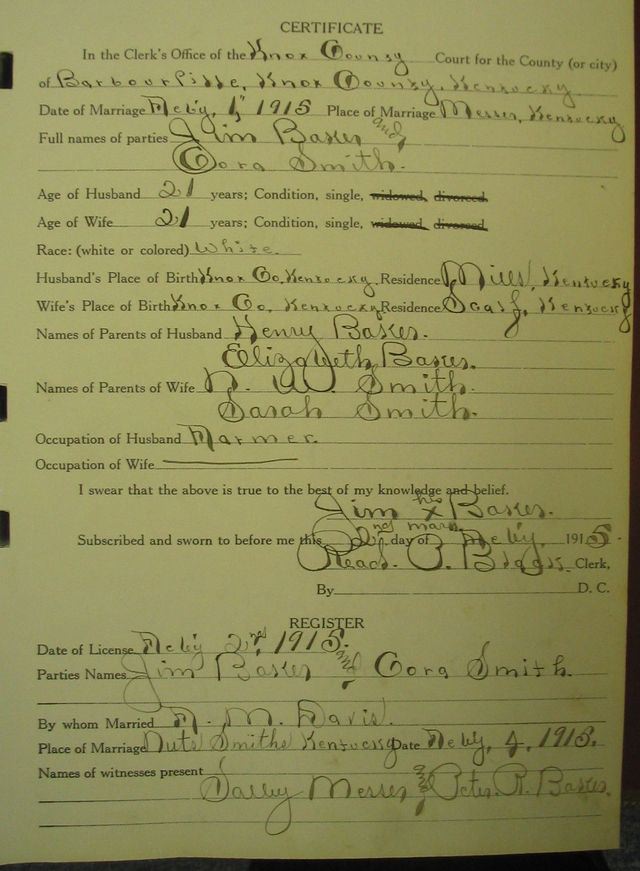 CERTIFICATE
In the Clerk's Office of the Knox County Court for the County (or city)
of Barbourville, Knox County, Kentucky
Date of Marriage Feby, 1915 Place of Marriage Messer, Kentucky
Full names of parties Jim Baker and
Cora Smith.
Age of Husband 21 years; Condition, single, widowed, divorced
Age of Wife 21 years; Condition, single, widowed, divorced
Race: (white or colored) White.
Husband's Place of Birth Knox Co, Kentucky. Residence Mills, Kentucky
Wife's Place of Birth Knox Co, Kentucky Residence Scalf, Kentucky
Names of Parents of Husband Henry Baker.
Elizabeth Baker.
Names of Parents of Wife W. Smith.
Sarah Smith.
Occupation of Husband Farmer.
Occupation of Wife
I swear that the above is true to the best of my knowledge and belief.
his
Jim x Baker.
mark
Subscribed and sworn to before me this 2nd day of Feby, 1915.
Read P. Clerk,
By D. C.
REGISTER
Date of License Feby 2nd 1915.
Parties Names Jim Baker and Cora Smith.
By whom Married M. Davis.
Place of Marriage Smiths Kentucky Date Feby, 4, 1915.
Names of witnesses present
Messer and Peter R. Baker.